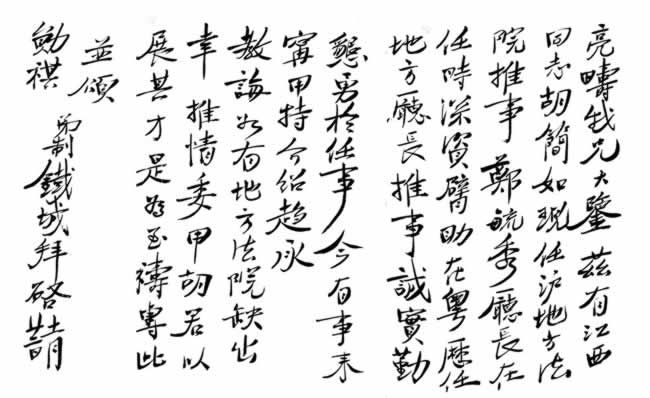 亮疇我兄大鑒 茲有江西
同志胡簡如現任沪地方法
院推事 鄭毓秀廳長在
任時深資臂助在粵歷任
地方廳長推事誠實勤
懇勇於任事今有事来
甯用特介紹趨承
教誨如有地方法院缺出
幸 推情委用胡君以
展其才是為至禱專此
並頌
勛祺 弟制鐵城拜啓